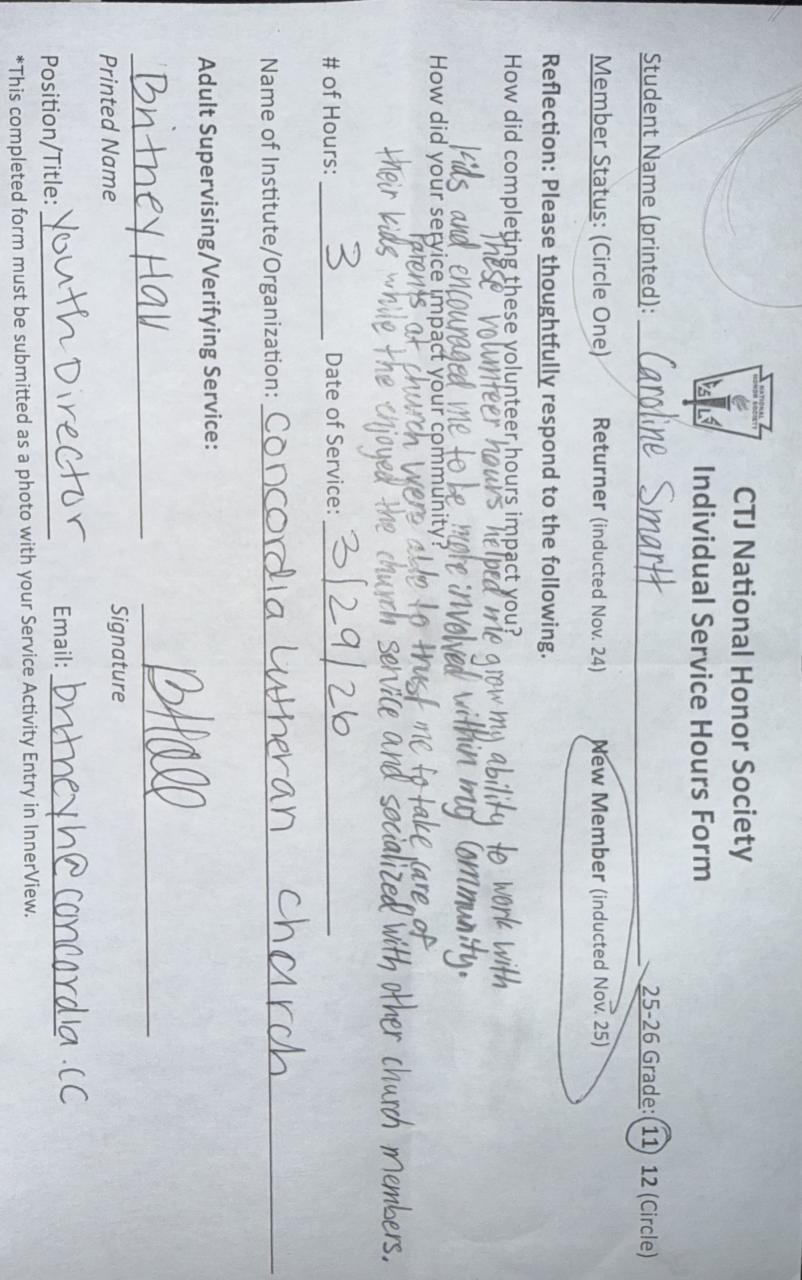 CTJ National Honor Society
Individual Service Hours Form
NATIONAL
HONOR SOCIETY
Student Name (printed): Caroline Smartt 25-26 Grade: 11 12 (Circle)
Member Status: (Circle One) Returner (inducted Nov. 24) New Member (inducted Nov. 25)
Reflection: Please thoughtfully respond to the following.
How did completing these volunteer hours impact you?
These volunteer hours helped me grow my ability to work with
kids and encouraged me to be more involved within my community.
How did your service impact your community?
Parents at church were able to trust me to take care of
their kids while the enjoyed the church service and socialized with other church members.
# of Hours: 3 Date of Service: 3/29/26
Name of Institute/Organization: Concordia Lutheran church
Adult Supervising/Verifying Service:
Britney Hall BHall
Printed Name Signature
Position/Title: Youth Director Email: britneyh@concordia.cc
*This completed form must be submitted as a photo with your Service Activity Entry in InnerView.